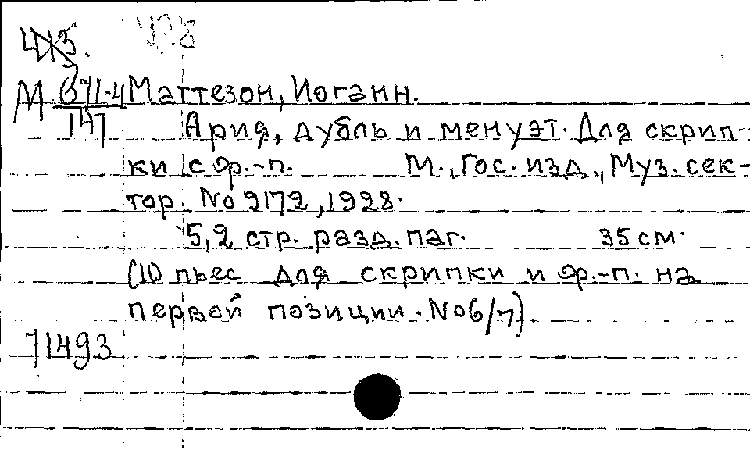 М 671-4 Маттезон, Иоганн.
147
Ария, дубль и менуэт. Для скрип-
ки с ф.-п. М., Гос. изд., Муз. сек-
тор. No 9172, 1928.
5,2 стр. разд. паг. 35 см.
(10 пьес для скрипки и ф.-п. на
первой позиции. No 6/7).
71493